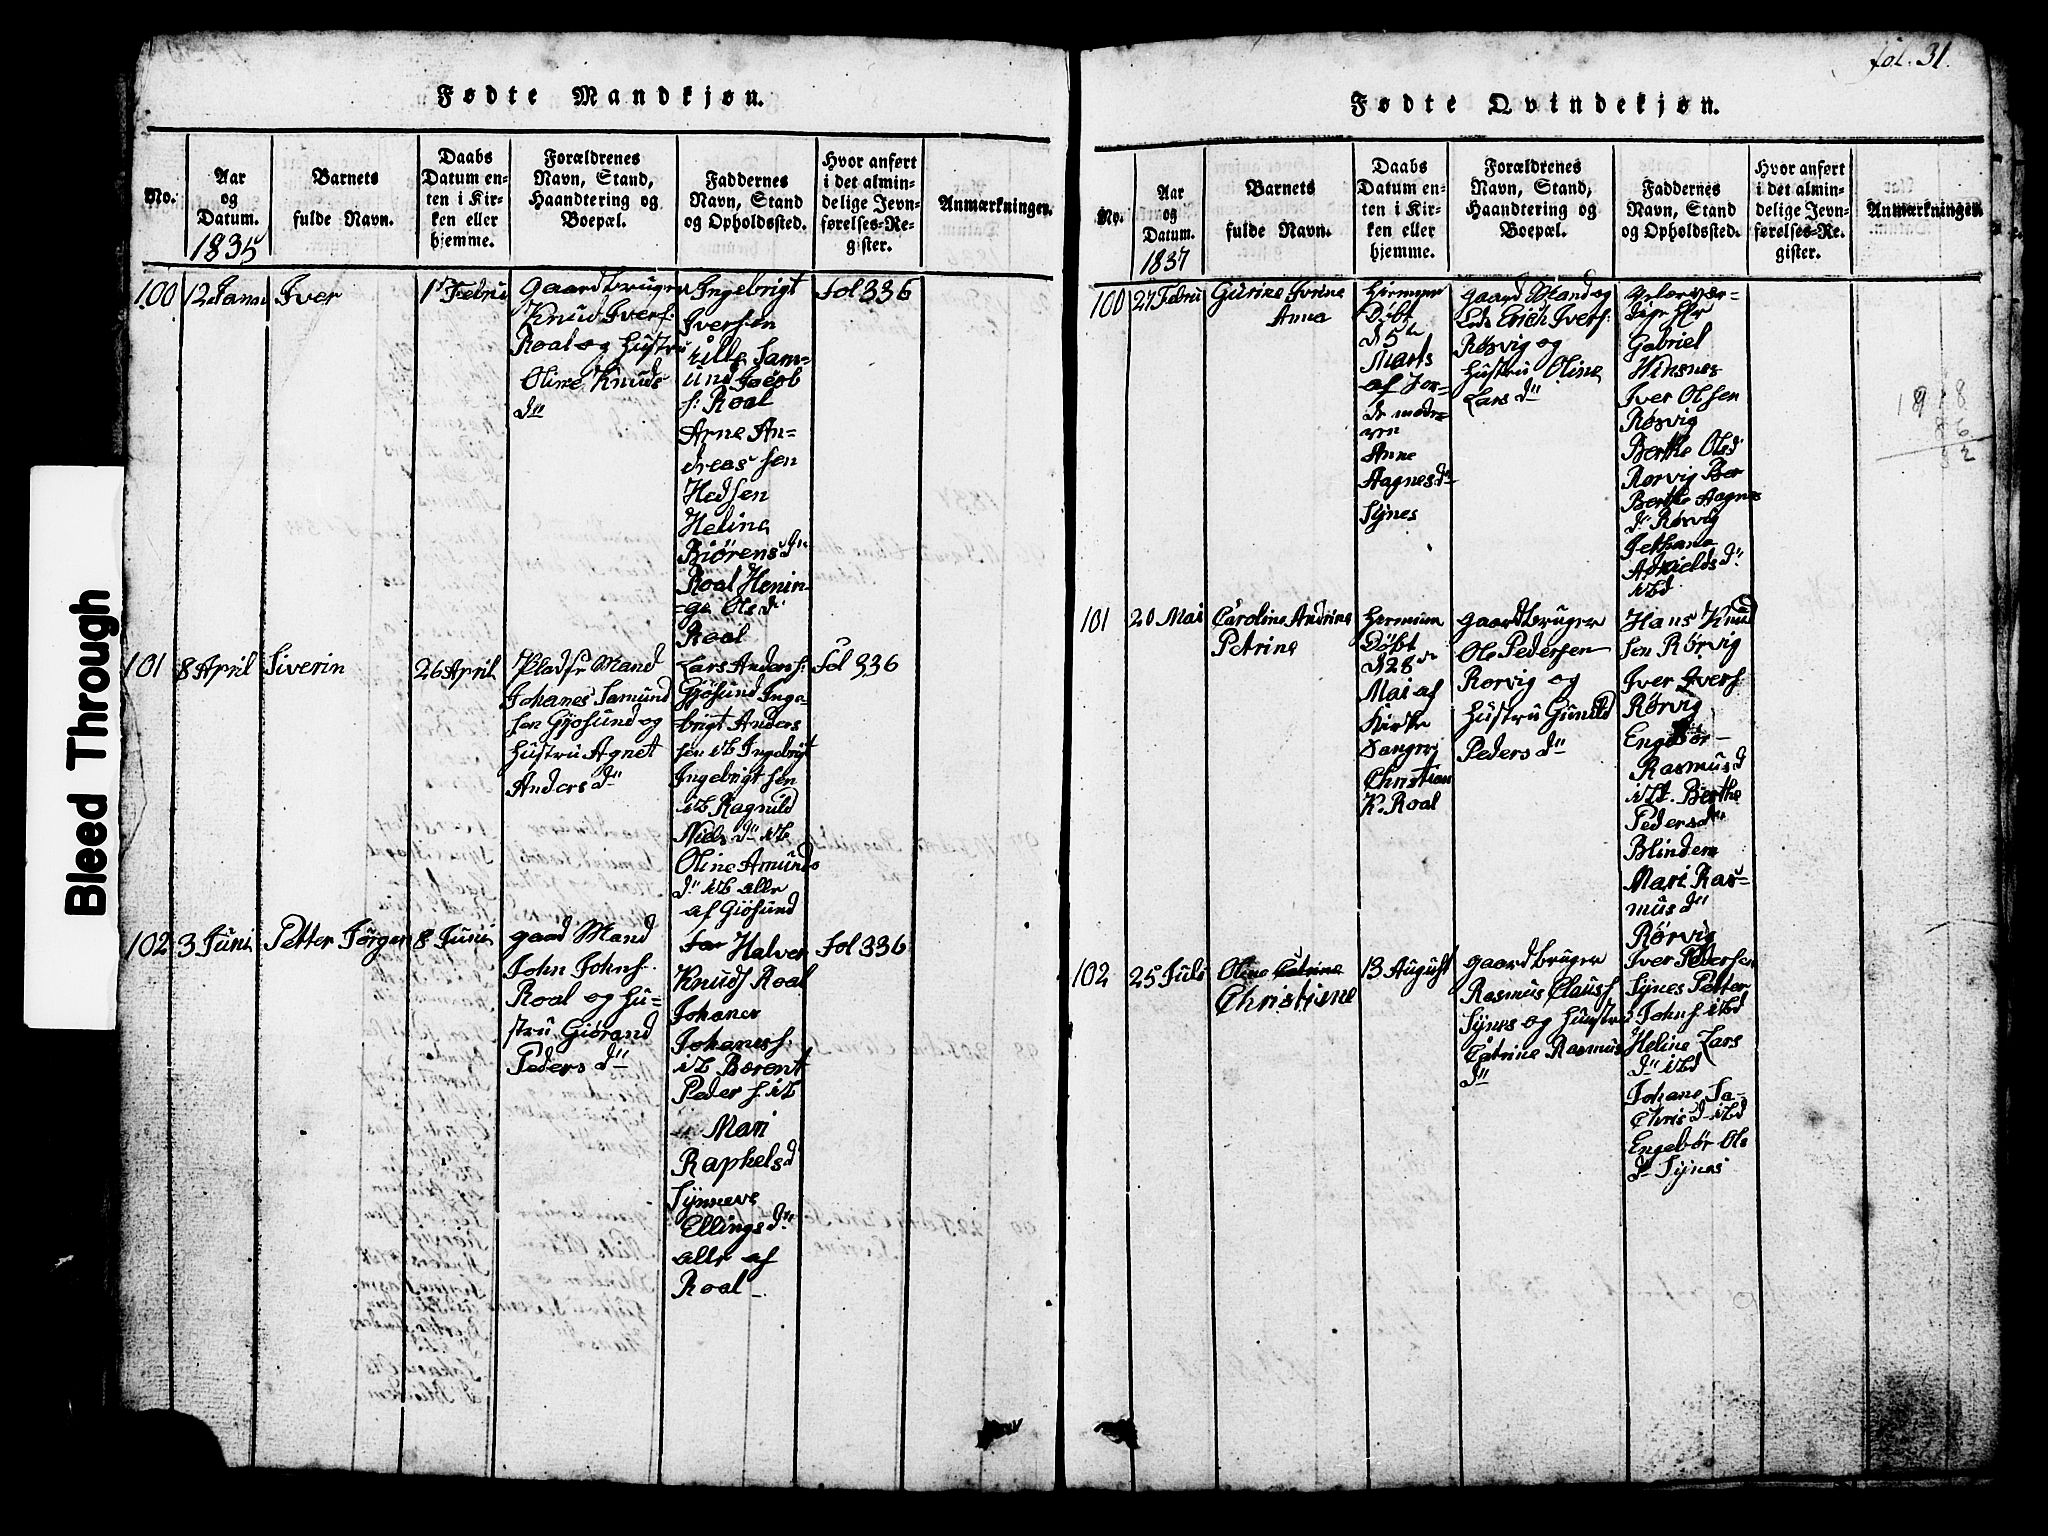 Bleed Through
Fødte Mandkjøn.
No.
Aar
og
Datum.
1835
Barnets
fulde Navn.
Daabs
Datum en-
ten i Kir-
ken eller
hjemme.
Forældrenes
Navn, Stand,
Haandtering og
Boepæl.
Faddernes
Navn, Stand
og Opholdssted.
Hvor anført
i det almin-
delige Jevn-
førelses-Re-
gister.
Anmærkninger.
100
12 Janu
Iver
1 Febru
Gaardbruger
Knud Ivers:
Roal og Hustru
Oline Knuds
dtr
Ingebrigt
Iversen
Sam-
und Jacob
s: Roal
Arne An-
dreas sen
Hedsen
Heline
Biørens dtr
Roal Henin-
ge Ols d
Roal
fol 336
101
8 April
Siverin
26 April
Pladsr Mand
Johanes Samund
sen Gjøsund og
Hustru Agnet
Anders dtr
Lars Anders s:
Gjøsund Inge-
brigt Anders
sen ib Ingebrigt
Ingebrigt sen
ib Ragnild
Niels dtr ib
Oline Amunds
dtr ib alle
af Giøsund
fol 336
102
3 Juni
Petter Jørgen
8 Juni
gaard Mand
John Johns.
Roal og Hu-
stru Giørand
Peders dtr
Halver
Knuds Roal
Johaner
Johanes s:
ib Berent
Peder s. ib
Mari
Raphelsd
Synneve
Ellings dtr
alle af
Roal
fol 336
fol. 31.
Fødte Qvindekjøn.
No.
Aar
og
Datum.
1837
Barnets
fulde Navn.
Daabs
Datum en-
ten i Kir-
ken eller
hjemme.
Forældrenes
Navn, Stand,
Haandtering og
Boepæl.
Faddernes
Navn, Stand
og Opholdssted.
Hvor anført
i det almin-
delige Jevn-
førelses-Re-
gister.
Anmærkninger.
100
27 Febru
Gurine Ivrine
Anna
Hiemme
Døbt
d 5te
Marts
af Jor-
de modr-
ren
Anne
Aagnesdtr
Synes
gaard Mand og
Erich Ivers:
Røsvig og
Hustru Oline
Lars dtr
Hr
Gabriel
Hinsnes
Iver Olsen
Røsvig
Berthe Olsd
Rørvig Ber
Berthe Aagnes
d: Rørvig
Jethane
dtr:
ibd
101
20 Mai
Caroline Andrine
Petrine
Hiemme
Døbt
d 28de
Mai af
Kirke
Sanger
Christian
K. Roal
gaardbruger
Ole Pedersen
Rorvig og
Hustru Gunild
Peders dtr
Hans Knud
sen Rørvig
Iver Ivers
Rørvig
Engebør-
Rasmusd
ibd. Berthe
Pedersdtr
Blindem
Mari Ras-
mus dtr
Rørvig
102
25 Juli
Oline Catrine
Christine
13 August
gaardbruger
Rasmus Clauss
Synes og Hustru
Catrine Rasmus
dtr
Iver Pedersen
Synes Petter
Johns ibd
Heline Lars
dtr ibd
Johane Sa-
Chris d ibd
Engebør Ols
dtr Synes